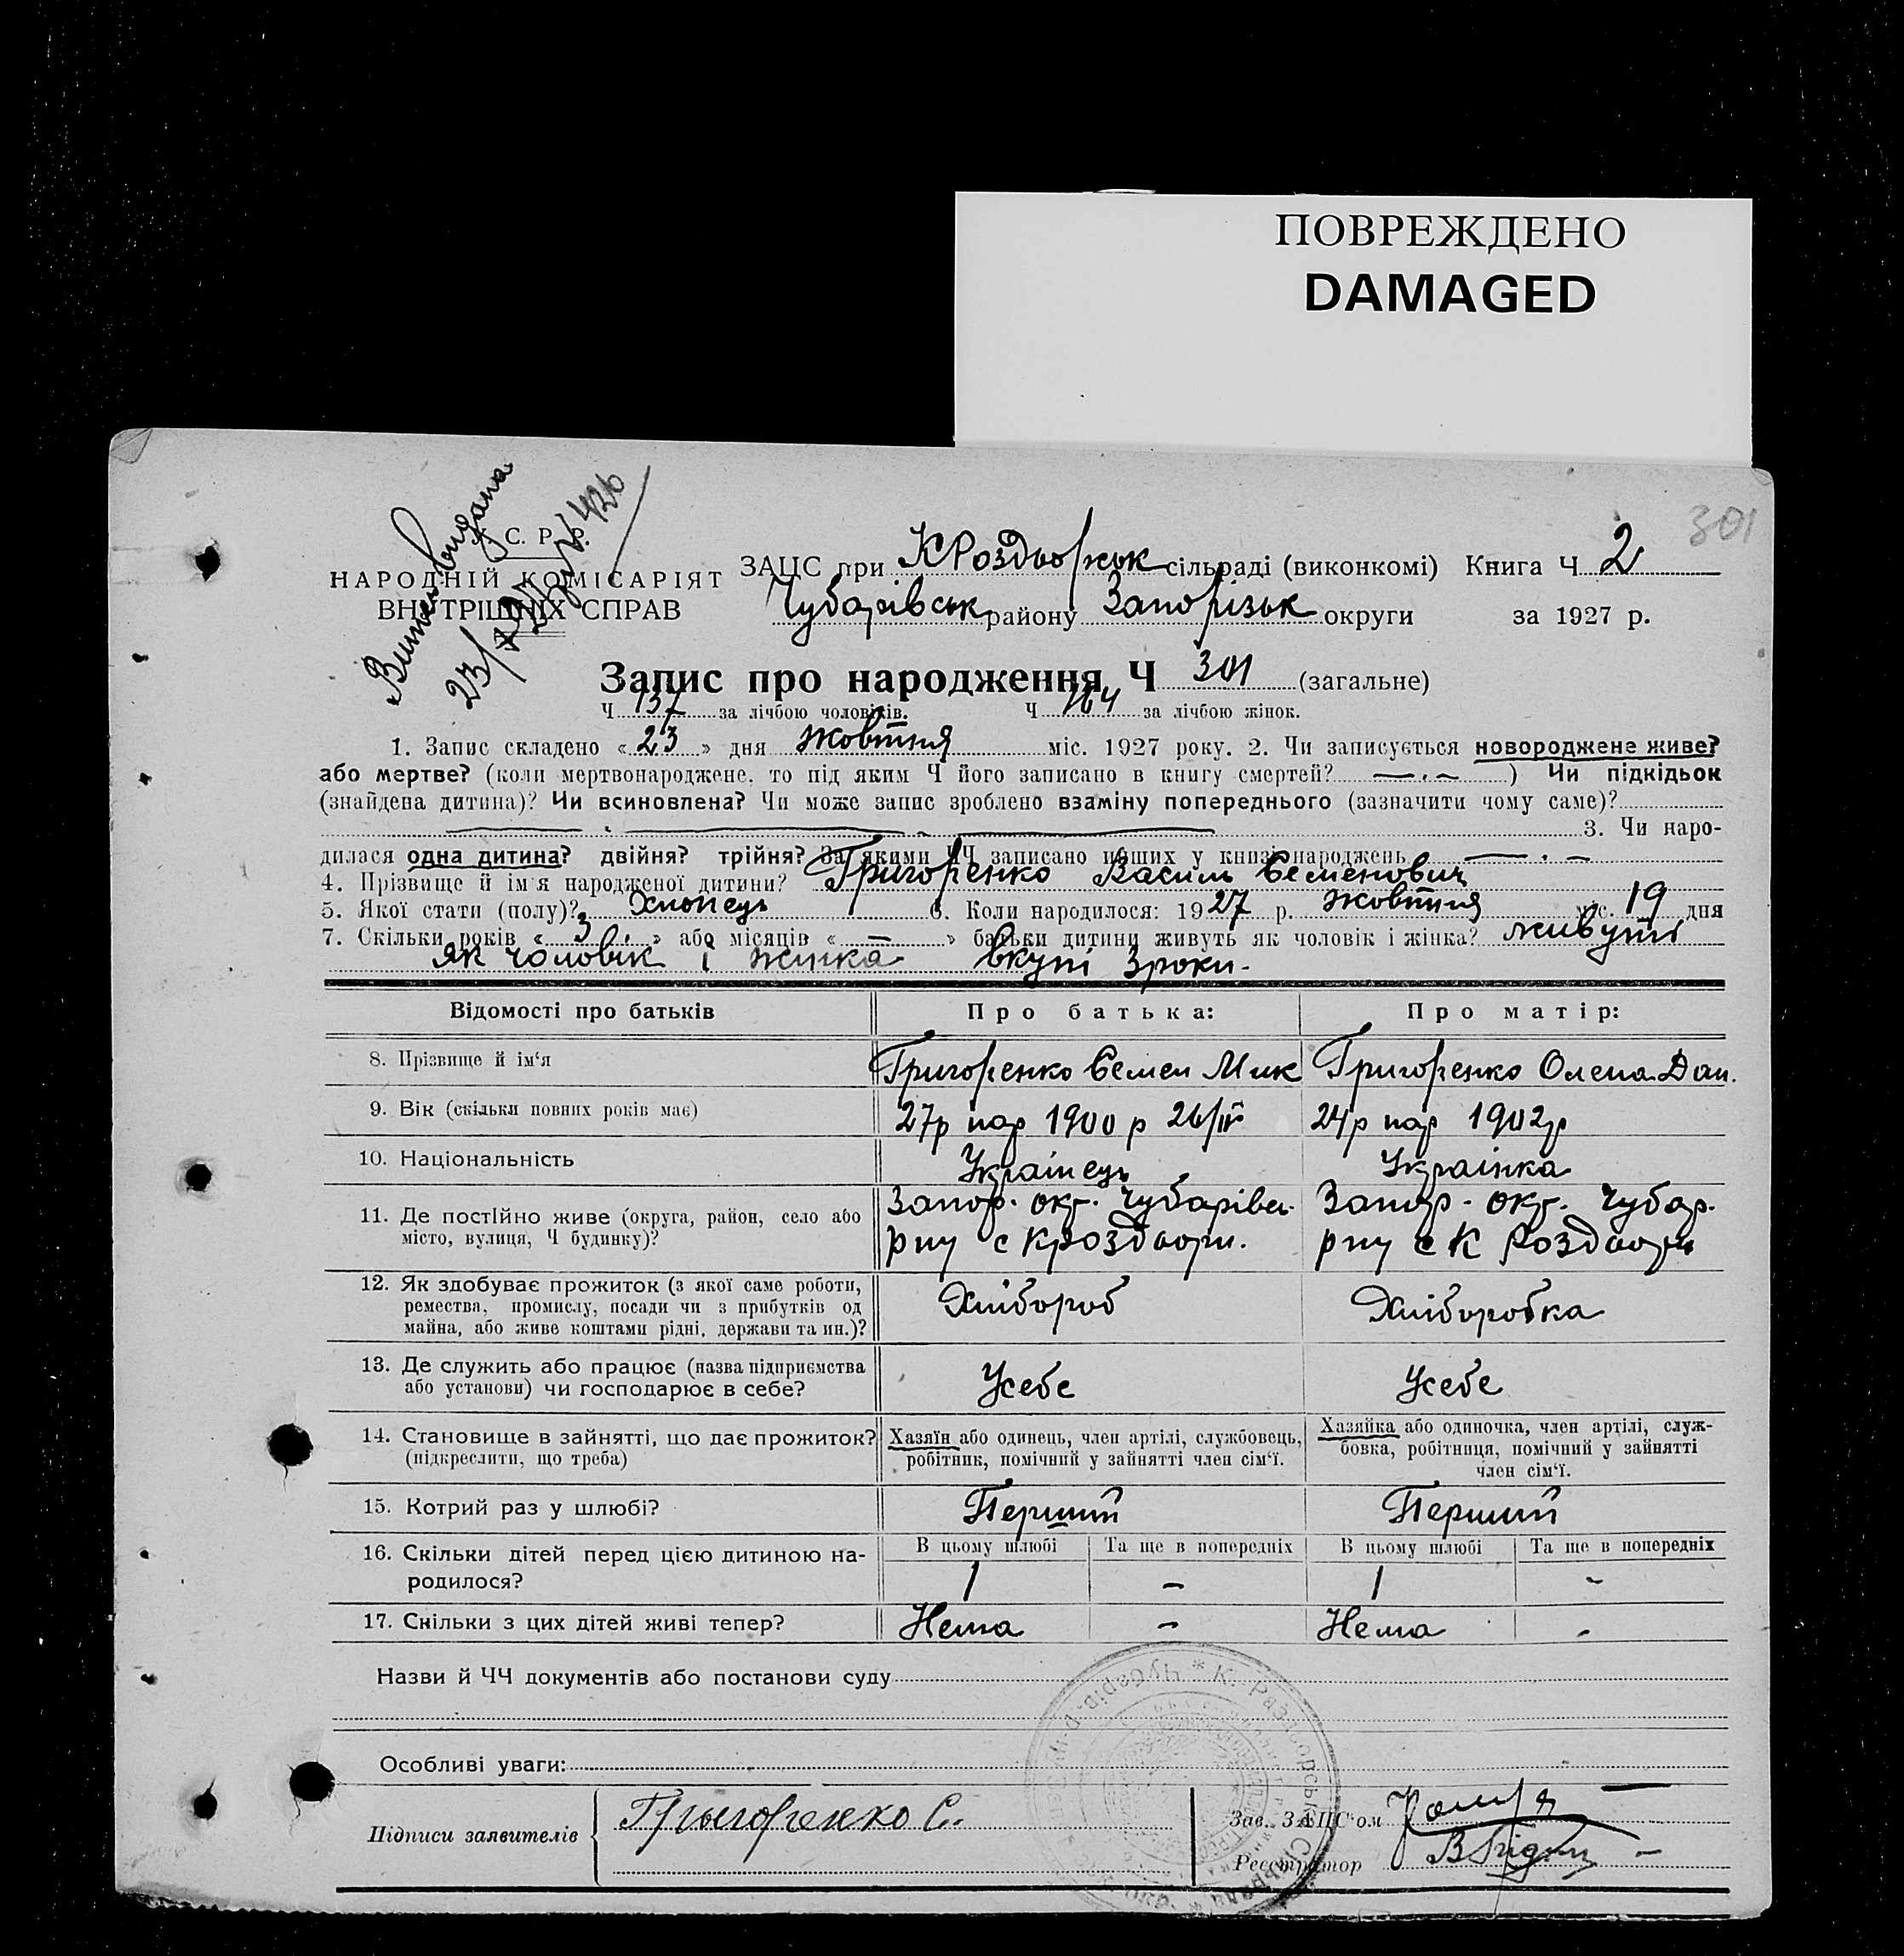 ПОВРЕЖДЕНО
DAMAGED
301
Виписъ видана
С. Р. Р.
НАРОДНІЙ КОМІСАРІЯТ
ВНУТРІШНІХ СПРАВ
ЗАЦС при К Роздьорськ сільраді (виконкомі) Книга Ч 2
Чубарівськ району Запорізьк округи за 1927 р.
Запис про народження Ч 301 (загальне)
Ч 137 за лічбою чоловіків. Ч 164 за лічбою жінок.
1. Запис складено « 23 » дня жовтня міс. 1927 року. 2. Чи записується новороджене живе?
або мертве? (коли мертвонароджене, то під яким Ч його записано в книгу смертей? — . — ) Чи підкідьок
(знайдена дитина)? Чи всиновлена? Чи може запис зроблено взаміну попереднього (зазначити чому саме)?
3. Чи наро-
дилася одна дитина? двійня? трійня? За якими ЧЧ записано инших у книзі народжень — . —
4. Прізвище й ім'я народженої дитини? Григоренко Василь Семенович
5. Якої стати (полу)? Хлопець 6. Коли народилося: 1927 р. жовтня міс. 19 дня
7. Скільки років « 3 » або місяців « — » батьки дитини живуть як чоловік і жінка? живуть
як чоловік і жінка вкупі 3 роки.
Відомості про батьків Про батька: Про матір:
8. Прізвище й ім'я Григоренко Семен Мик Григоренко Олена Дан.
9. Вік (скільки повних років має) 27р нар 1900 р 26/IV 24р нар 1902р
10. Національність Українець Українка
11. Де постійно живе (округа, район, село або
місто, вулиця, Ч будинку)?
Запор. окр. Чубарівсь.
рну с К роздьори.
Запор. окр. Чубар.
рну с К Роздьори
12. Як здобуває прожиток (з якої саме роботи,
ремества, промислу, посади чи з прибутків од
майна, або живе коштами рідні, держави та ин.)?
Хлібороб Хліборобка
13. Де служить або працює (назва підприємства
або установи) чи господарює в себе?
Усебе Усебе
14. Становище в зайнятті, що дає прожиток?
(підкреслити, що треба)
Хазяїн або одинець, член артілі, службовець,
робітник, помічний у зайнятті член сім'ї.
Хазяйка або одиночка, член артілі, служ-
бовка, робітниця, помічний у зайнятті
член сім'ї.
15. Котрий раз у шлюбі? Перший Перший
16. Скільки дітей перед цією дитиною на-
родилося?
В цьому шлюбі Та ще в попередніх В цьому шлюбі Та ще в попередніх
1 – 1 –
17. Скільки з цих дітей живі тепер? Нема – Нема –
Назви й ЧЧ документів або постанови суду
Особливі уваги:
Підписи заявителів Григоренко С.
Зав. ЗАЦС'ом
Реєстратор